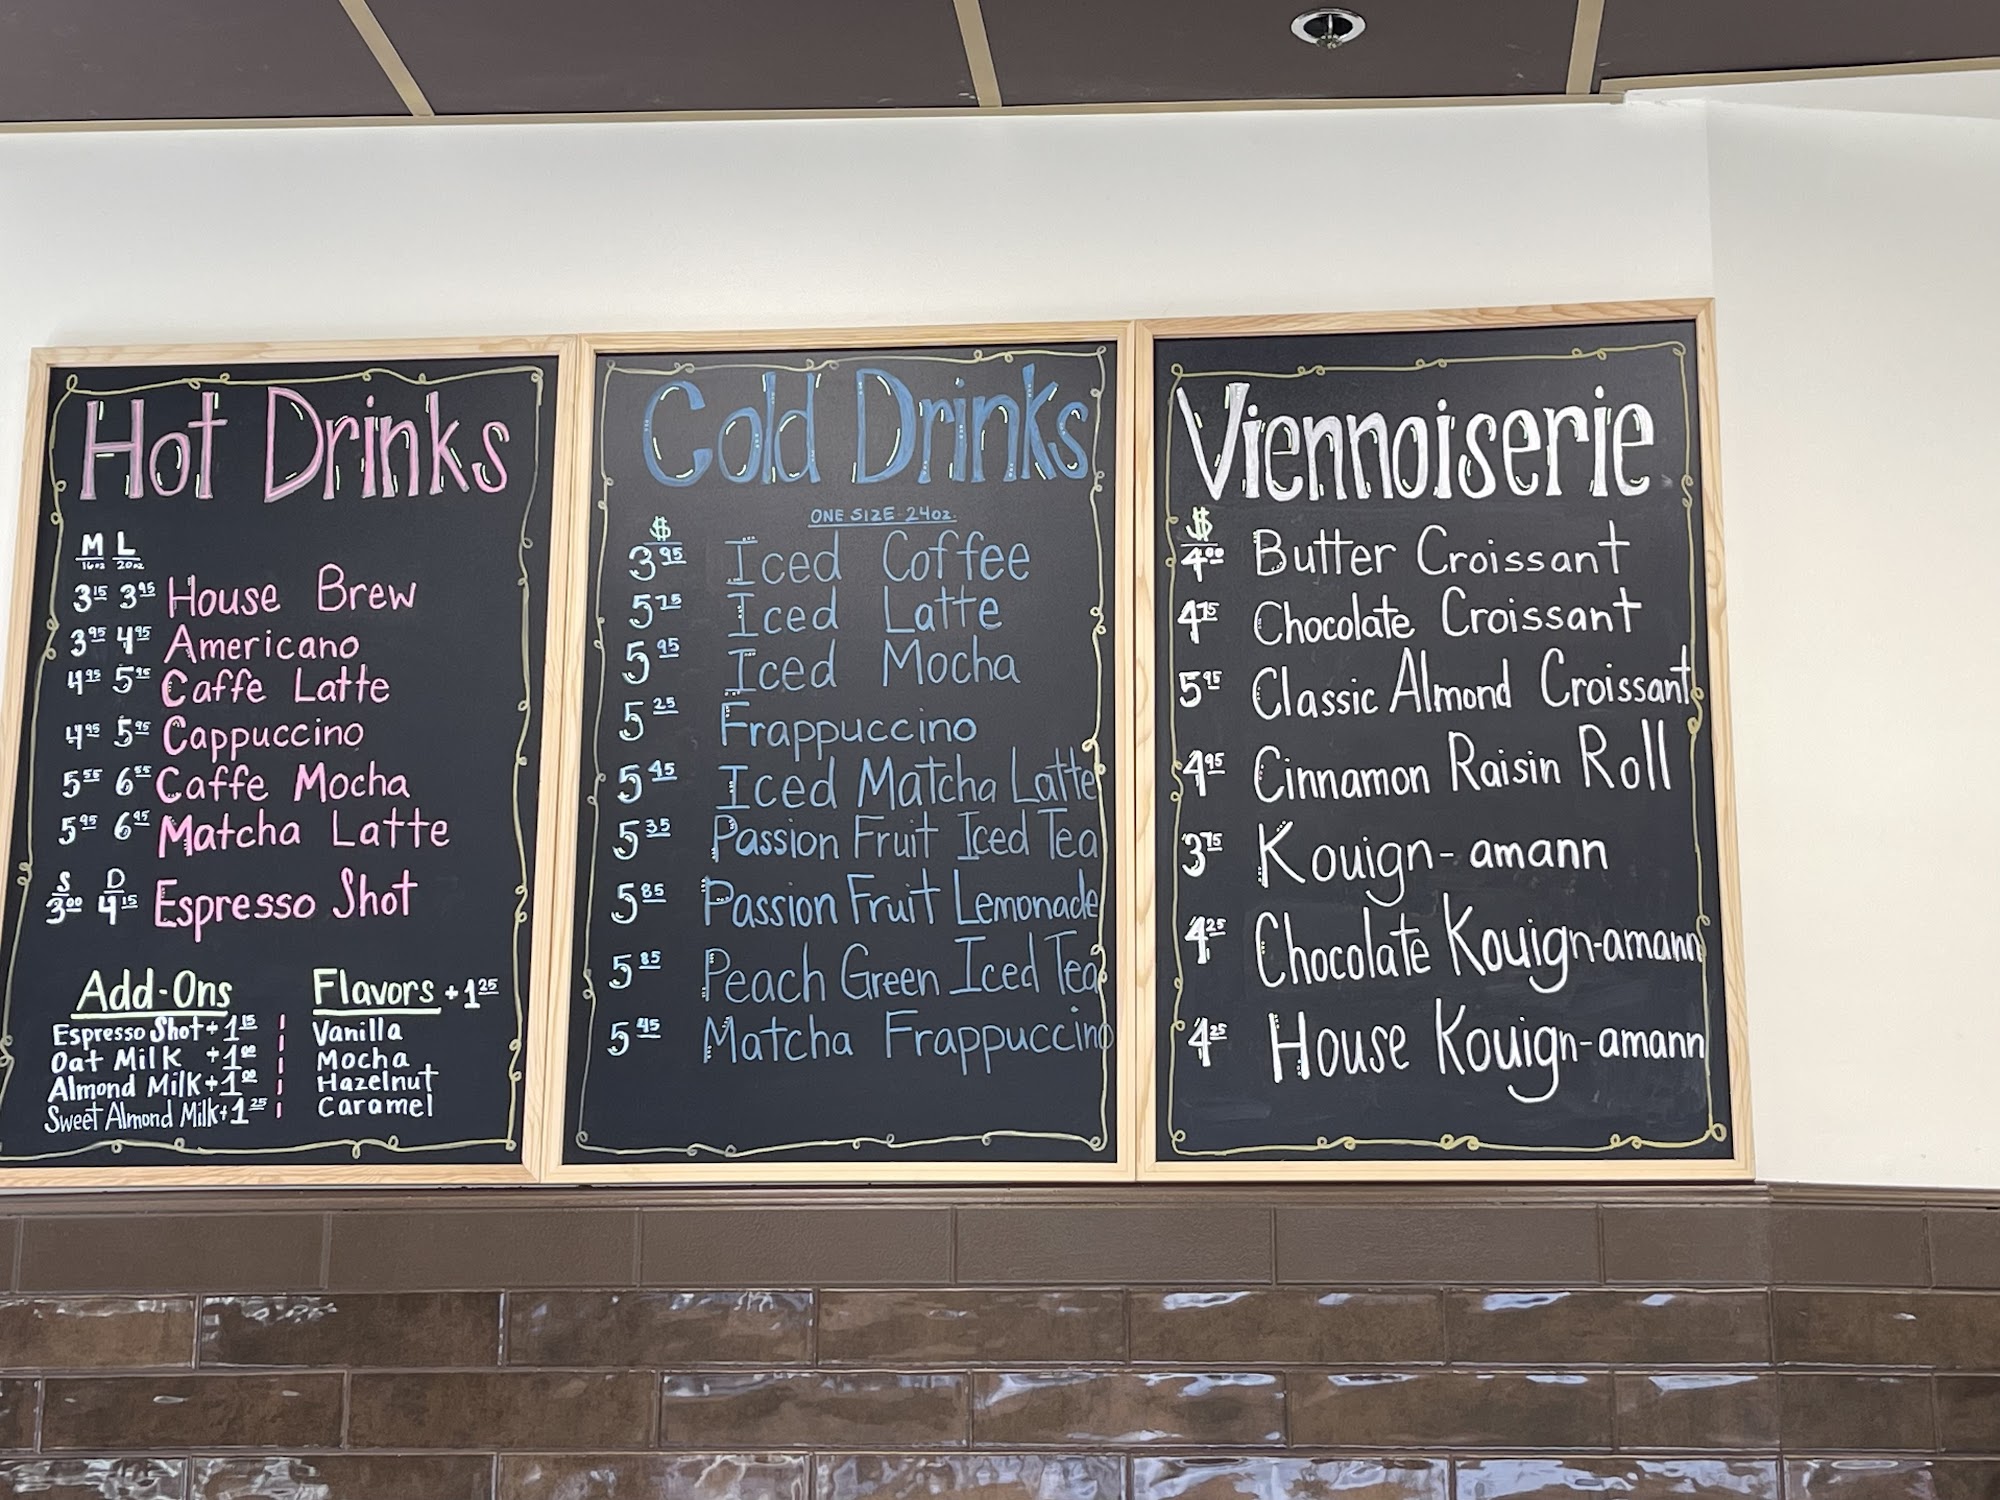 Hot Drinks
M L
16oz 20oz
3.15 3.95 House Brew
3.95 4.95 Americano
4.95 5.95 Caffe Latte
4.95 5.95 Cappuccino
5.55 6.55 Caffe Mocha
5.95 6.95 Matcha Latte
S D
3.00 4.15 Espresso Shot
Add-Ons
Espresso Shot + 1.15
Oat Milk +1.00
Almond Milk +1.00
Sweet Almond Milk +1.25
Flavors +1.25
Vanilla
Mocha
Hazelnut
Caramel
Cold Drinks
ONE SIZE-24oz.
$
3.95 Iced Coffee
5.25 Iced Latte
5.95 Iced Mocha
5.25 Frappuccino
5.45 Iced Matcha Latte
5.35 Passion Fruit Iced Tea
5.85 Passion Fruit Lemonade
5.85 Peach Green Iced Tea
5.45 Matcha Frappuccino
Viennoiserie
$
4.00 Butter Croissant
4.75 Chocolate Croissant
5.95 Classic Almond Croissant
4.95 Cinnamon Raisin Roll
3.75 Kouign-amann
4.25 Chocolate Kouign-amann
4.25 House Kouign-amann